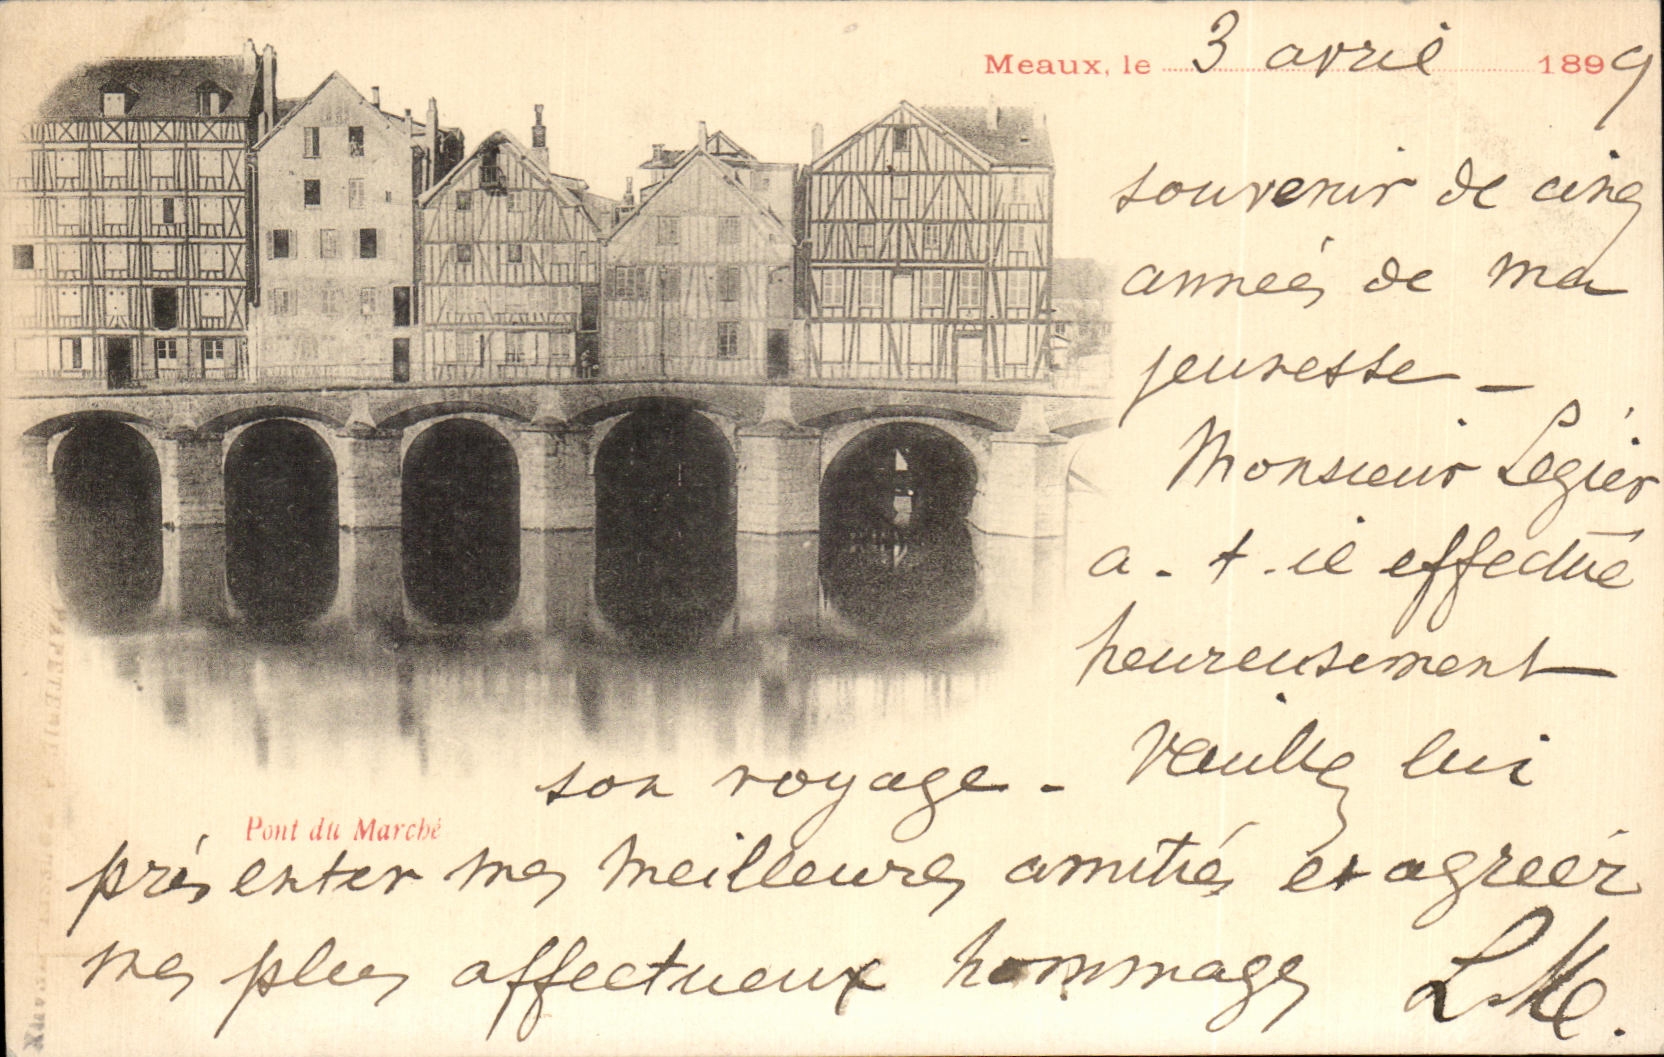 Meaux, le 3 avril 1899
souvenir de cinq
années de ma
jeunesse -
Monsieur Légier
a-t-il effectué
heureusement
son voyage - Veuillez lui
Pont du Marché
présenter mes meilleures amitiés et agréer
mes plus affectueux hommages